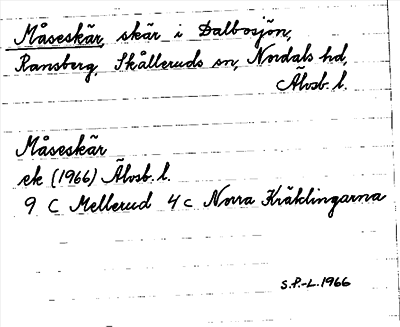 Måseskär, skär i Dalbosjön,
Ransberg, Skålleruds sn, Nordals hd,
Älvsb. l.
Måseskär
ek (1966) Älvsb. l.
9 C Mellerud 4 c Norra Kräklingarna
S.P.-L. 1966